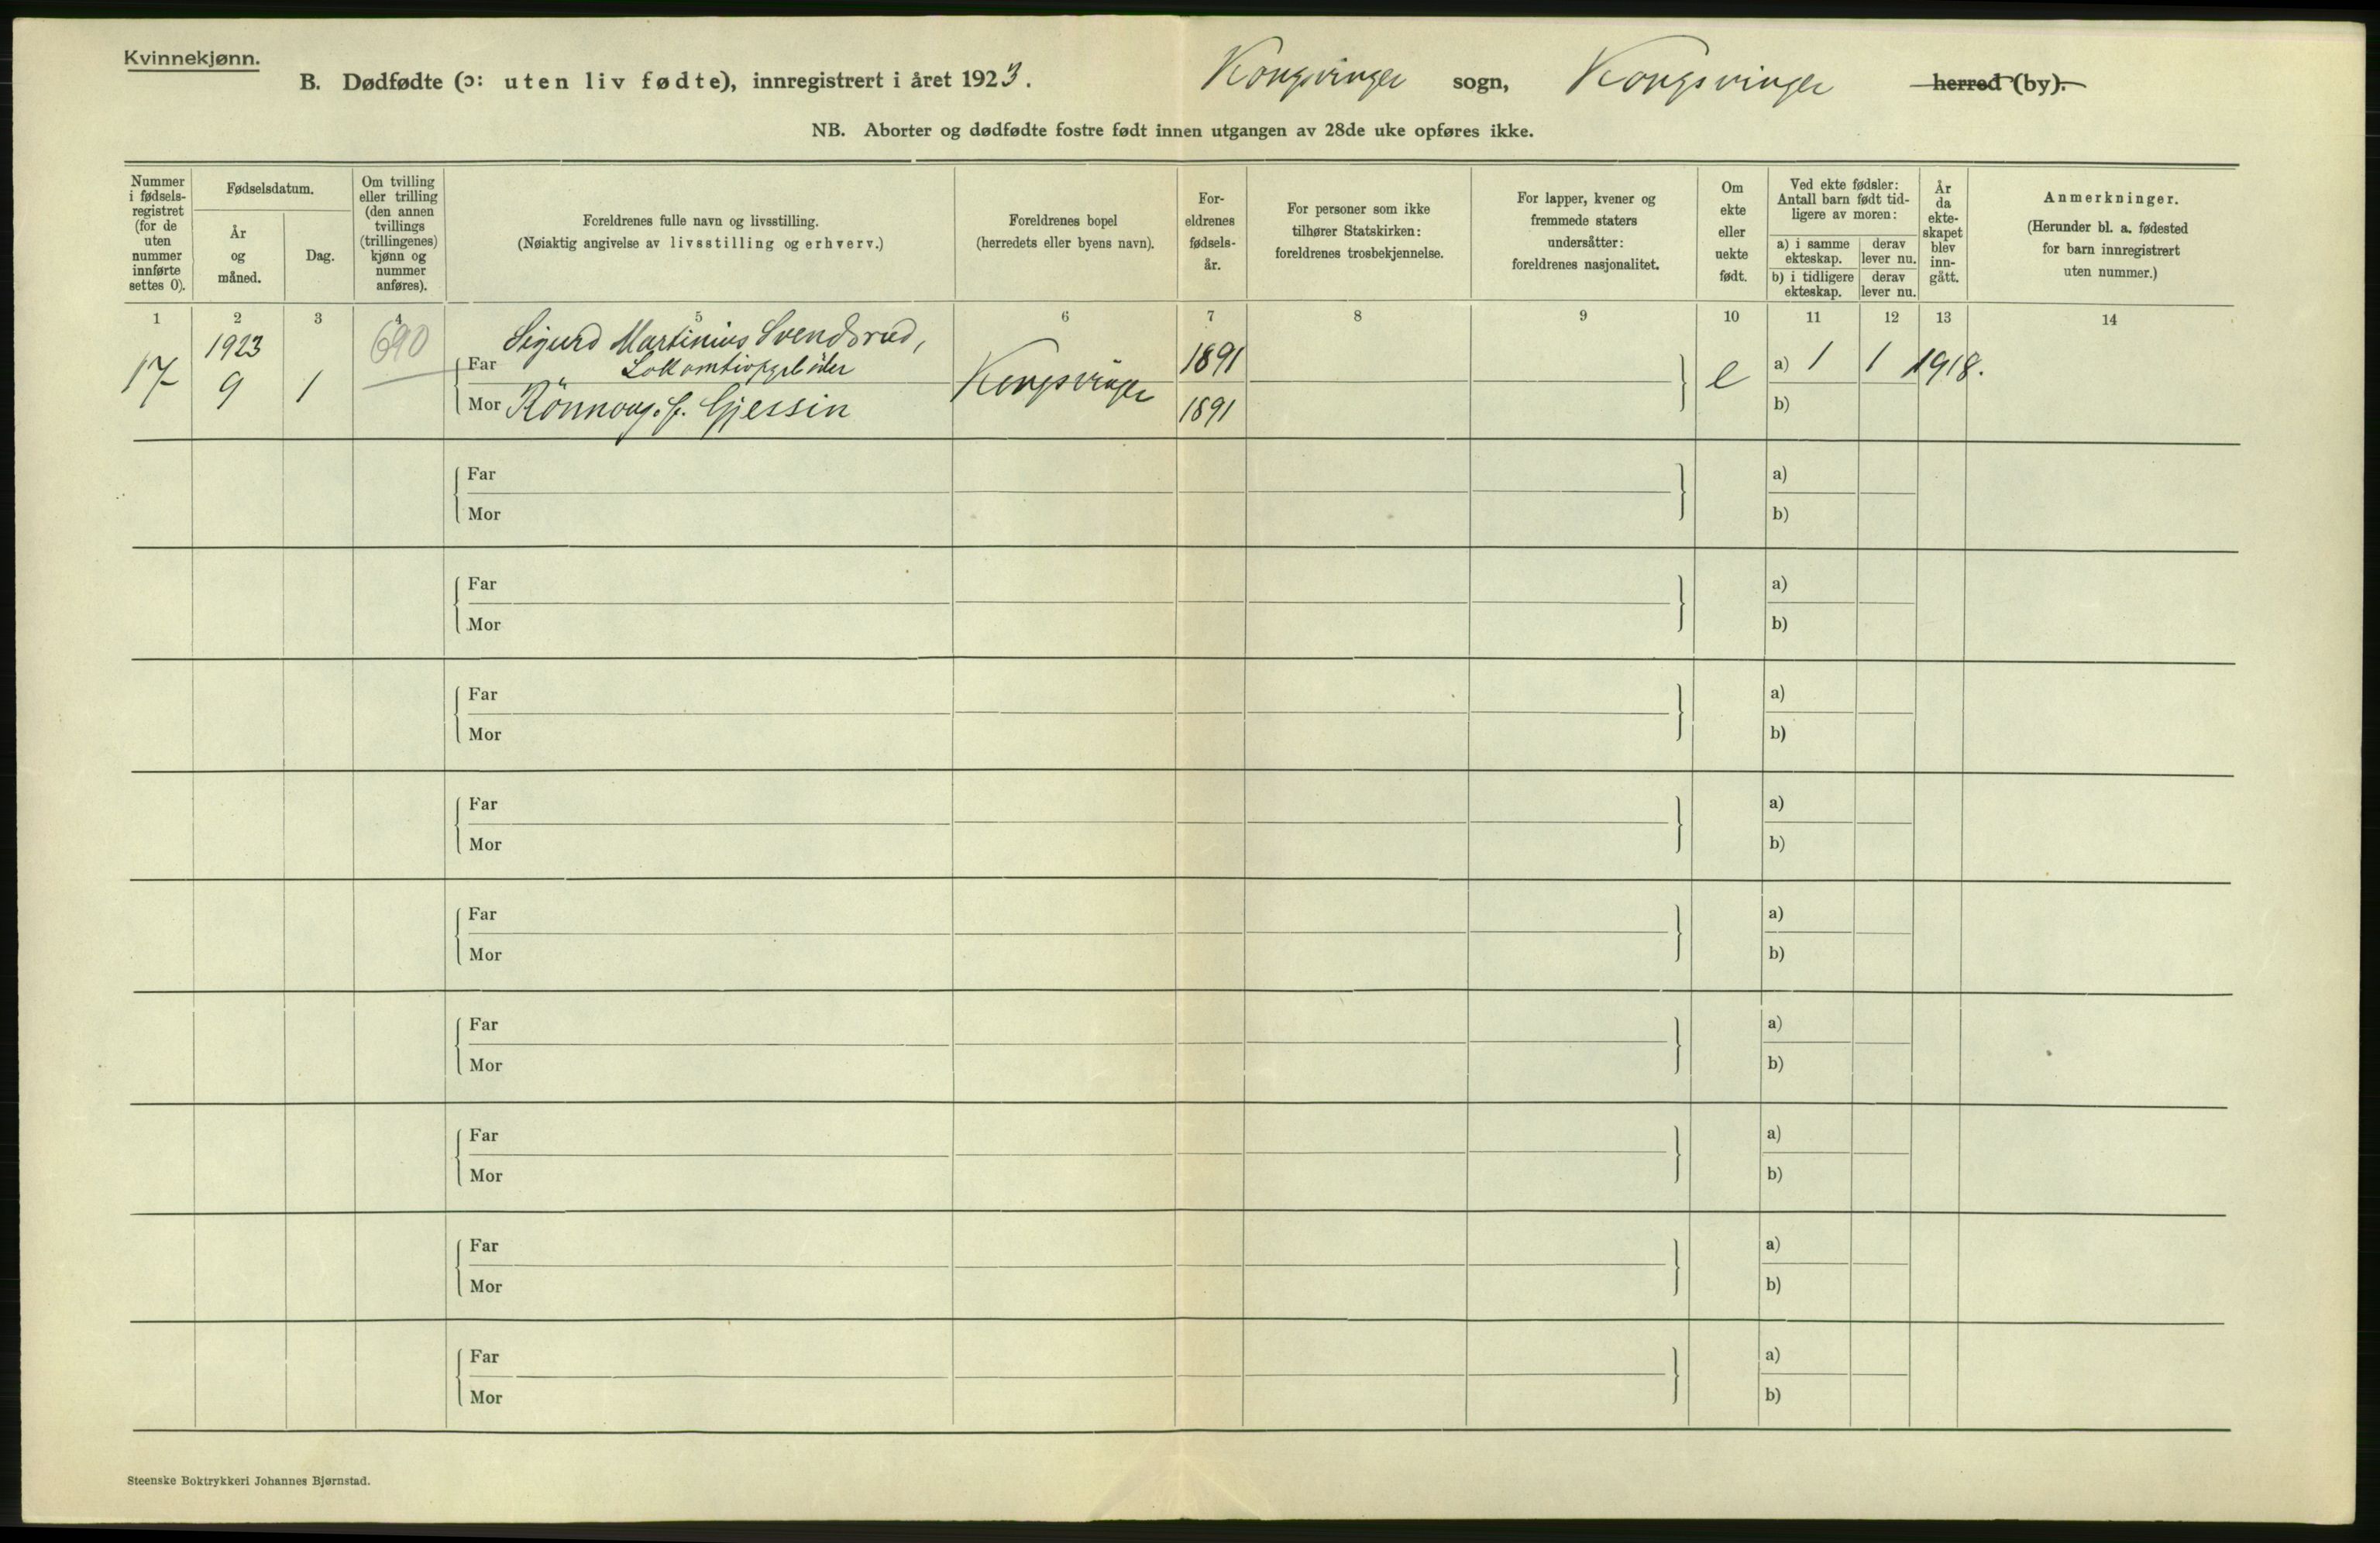 Kvinnekjønn.
B. Dødfødte (ɔ: uten liv fødte), innregistrert i året 1923. Kongsvinger sogn, Kongsvinger herred (by).
NB. Aborter og dødfødte fostre født innen utgangen av 28de uke opføres ikke.
Nummer i fødsels-registret (for de uten nummer innførte settes 0).
Fødselsdatum.
År og måned.
Dag.
Om tvilling eller trilling (den annen tvillings (trillingenes) kjønn og nummer anføres).
Foreldrenes fulle navn og livsstilling.
(Nøiaktig angivelse av livsstilling og erhverv.)
Foreldrenes bopel
(herredets eller byens navn).
For-eldrenes fødsels-år.
For personer som ikke tilhører Statskirken: foreldrenes trosbekjennelse.
For lapper, kvener og fremmede staters undersåtter: foreldrenes nasjonalitet.
Om ekte eller uekte født.
Ved ekte fødsler: Antall barn født tid-ligere av moren:
a) i samme ekteskap.
derav lever nu.
b) i tidligere ekteskap.
derav lever nu.
År da ekte-skapet blev inn-gått.
Anmerkninger.
(Herunder bl. a. fødested for barn innregistrert uten nummer.)
1 2 3 4 5 6 7 8 9 10 11 12 13 14
1923 690 Sigurd Martinius Svendsrud,
17 9 1 Far Kongsvinger 1891 e a) 1 1 1918.
Mor Rönnaug f. Gjessin 1891 b)
Far a)
Mor b)
Far a)
Mor b)
Far a)
Mor b)
Far a)
Mor b)
Far a)
Mor b)
Far a)
Mor b)
Far a)
Mor b)
Far a)
Mor b)
Far a)
Mor b)
Steenske Boktrykkeri Johannes Bjørnstad.